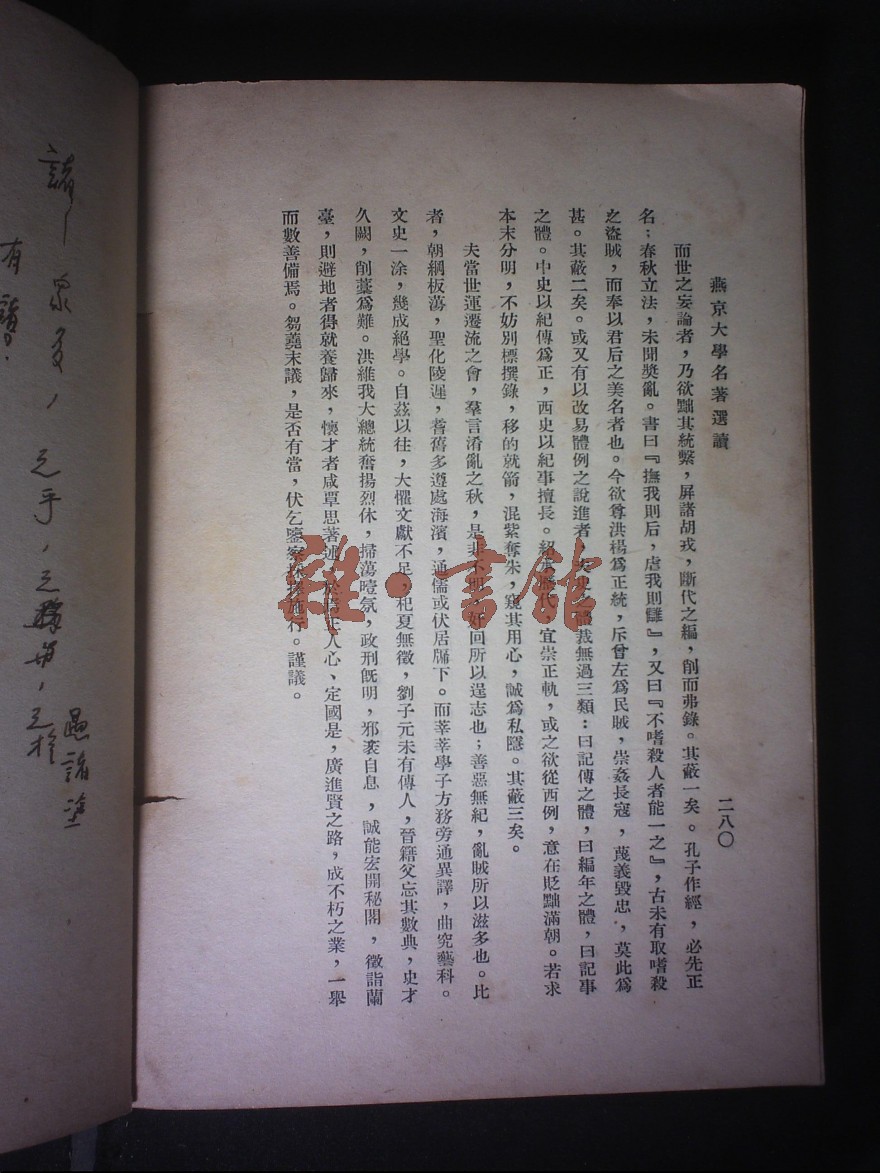 燕京大學名著選讀
二八〇
而世之妄論者，乃欲黜其統繫，屏諸胡戎，斷代之編，削而弗錄。其蔽一矣。孔子作經，必先正
名；春秋立法，未聞奬亂。書曰『撫我則后，虐我則讎』，又曰『不嗜殺人者能一之』，古未有取嗜殺
之盜賊，而奉以君后之美名者也。今欲尊洪楊爲正統，斥曾左爲民賊，崇姦長寇，蔑義毀忠，莫此爲
甚。其蔽二矣。或又有以改易體例之說進者，夫史之體裁無過三類：曰記傳之體，曰編年之體，曰記事
之體。中史以紀傳爲正，西史以紀事擅長。紹承歷代，宜崇正軌，或之欲從西例，意在貶黜滿朝。若求
本末分明，不妨別標撰錄，移的就箭，混紫奪朱，窺其用心，誠爲私隱。其蔽三矣。
夫當世運遷流之會，羣言淆亂之秋，是非不明，奸回所以逞志也；善惡無紀，亂賊所以滋多也。比
者，朝綱板蕩，聖化陵遲，耆舊多遵處海濱，通儒或伏居牖下。而莘莘學子方務旁通異譯，曲究藝科。
文史一涂，幾成絕學。自茲以往，大懼文獻不足，杞夏無徵，劉子元未有傳人，晉籍父忘其數典，史才
久闕，削藁爲難。洪維我大總統奮揚烈休，掃蕩曀氛，政刑旣明，邪袤自息，誠能宏開秘閣，徵詣蘭
臺，則避地者得就養歸來，懷才者咸覃思著述，於正人心、定國是，廣進賢之路，成不朽之業，一舉
而數善備焉。芻蕘末議，是否有當，伏乞鑒察採擇施行。謹議。
雜·書館
有諸
愚諸塗